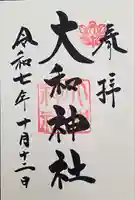 奉拝
大和神社
令和七年十月十二日